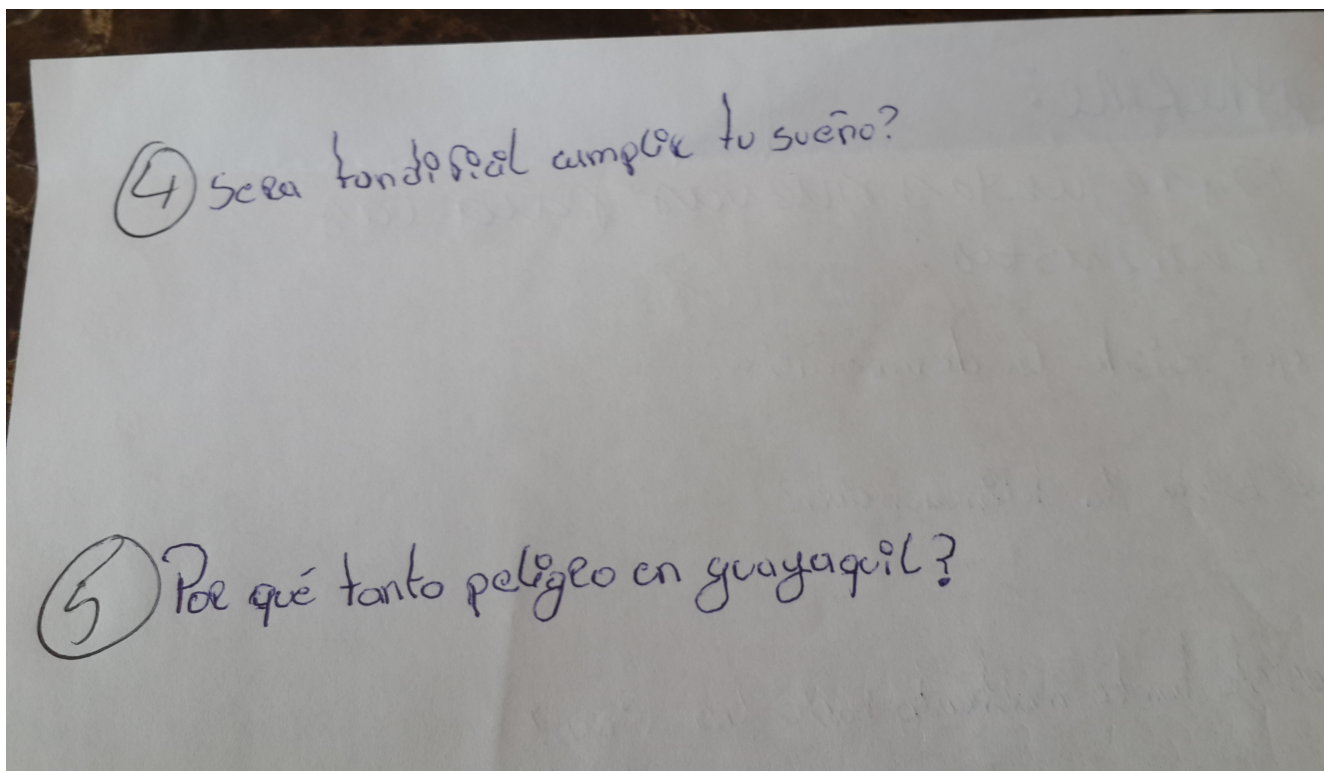 4 Sera tandificil cumplir tu sueño?
5 Por qué tanto peligro en guayaquil?